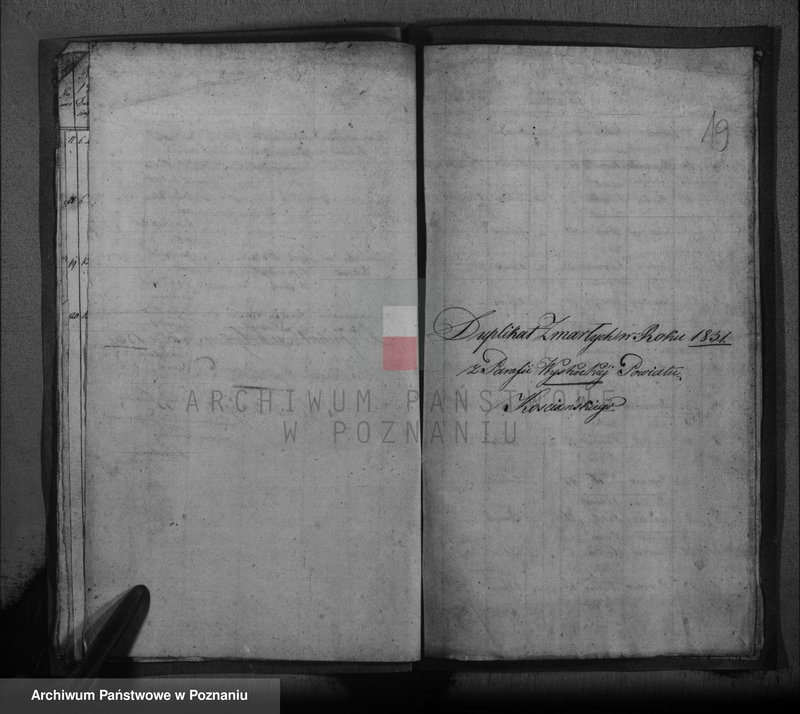 19
Duplikat Zmarłych w Roku 1831.
z Parafii Wyskockiej Powiatu
Kościańskiego
ARCHIWUM PAŃSTWOWE
W POZNANIU
Archiwum Państwowe w Poznaniu